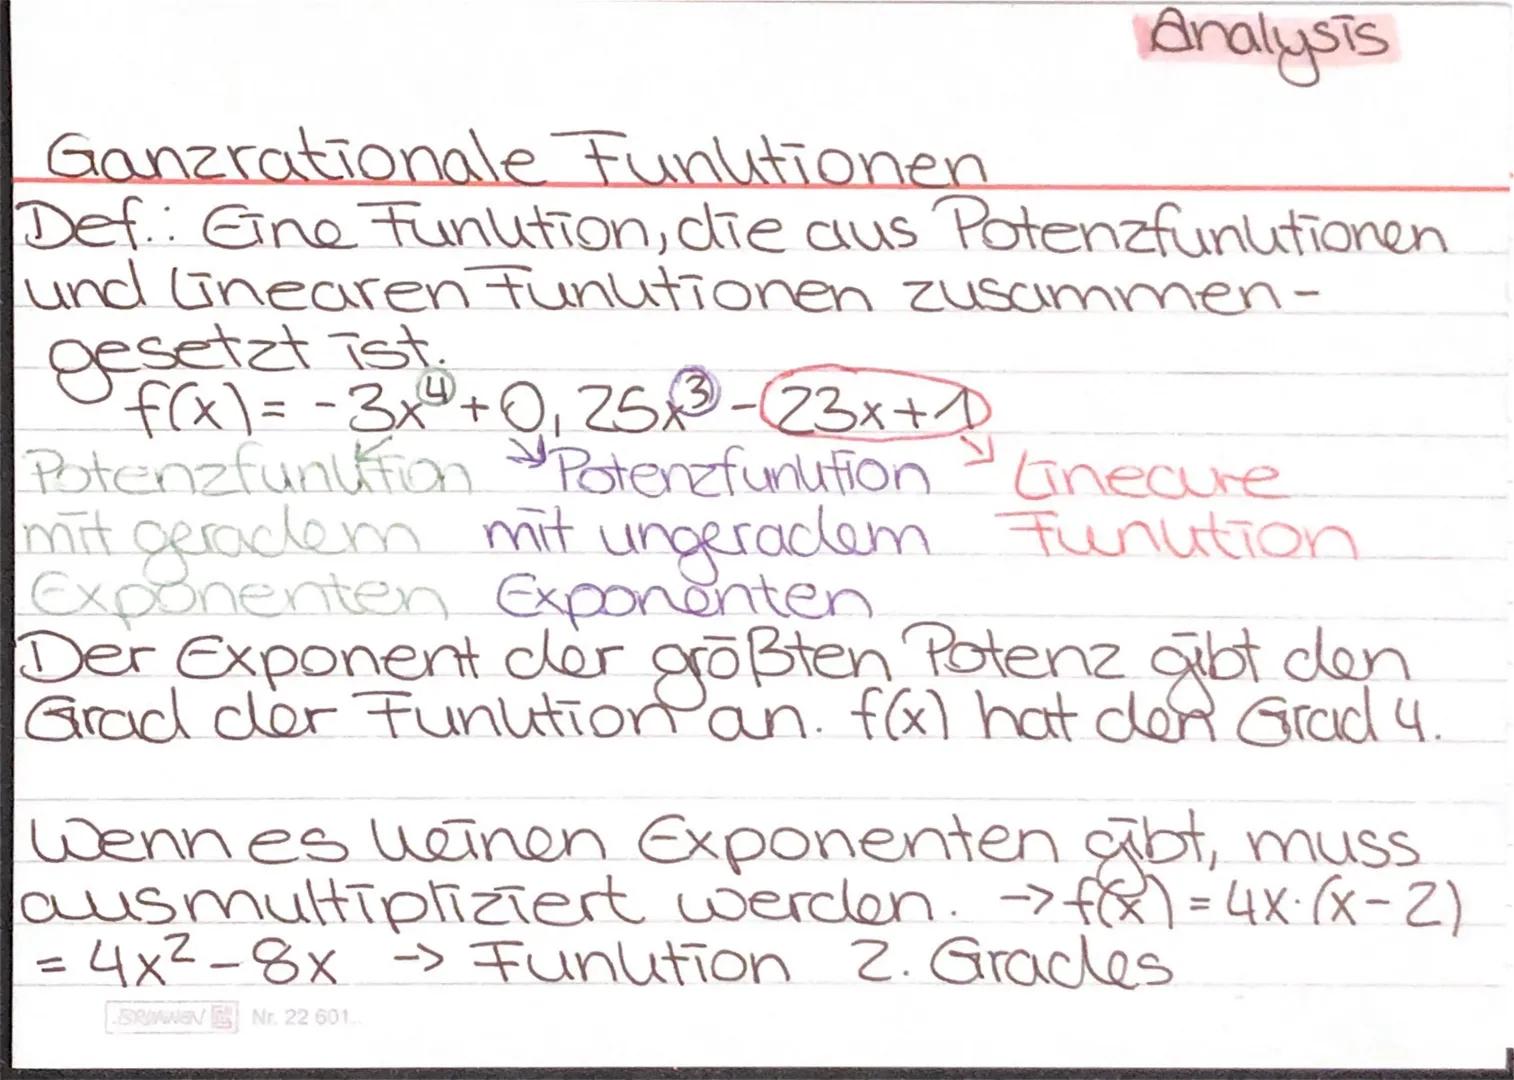 Analysis
Ganzrationale Funktionen
Def.: Eine Funktion, die aus Potenzfunktionen
und linearen Funktionen zusammen-
gesetzt ist.
f(x) = -3x⁴ + 0,25x³ - 23x+1
Potenzfunktion Potenzfunktion Lineare
mit geradem mit ungeradem Funktion
Exponenten Exponenten
Der Exponent der größten Potenz gibt den
Grad der Funktion an. f(x) hat den Grad 4.
Wenn es keinen Exponenten gibt, muss
ausmultipliziert werden. → f(x) = 4x·(x-2)
= 4x² - 8x → Funktion 2. Grades
BRUNNEN Nr. 22 601